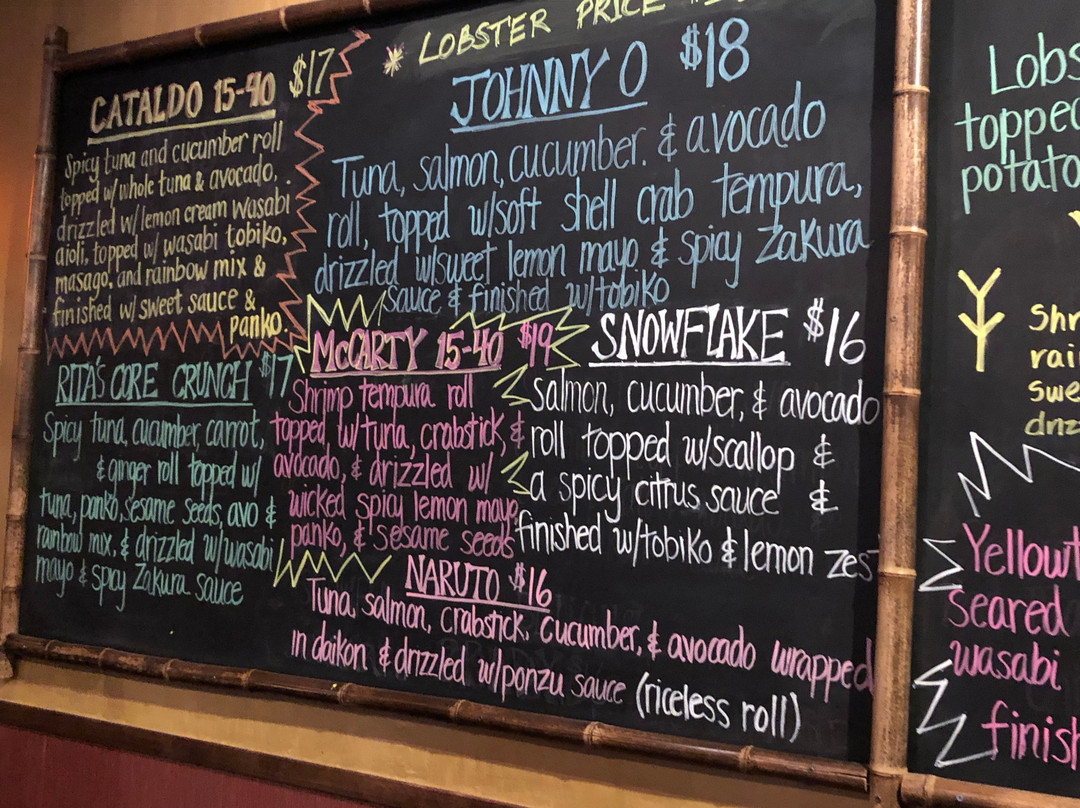 * LOBSTER PRICE
CATALDO 15-40 $17
Spicy tuna and cucumber roll
topped w/ whole tuna & avocado,
drizzled w/ lemon cream wasabi
aioli, topped w/ wasabi tobiko,
masago, and rainbow mix &
finished w/ sweet sauce &
panko.
JOHNNY O $18
Tuna, salmon, cucumber. & avocado
roll, topped w/soft shell crab tempura,
drizzled w/sweet lemon mayo & spicy Zakura
sauce & finished w/tobiko
RITA'S CORE CRUNCH $17
Spicy tuna, cucumber, carrot,
& ginger roll topped w/
tuna, panko, sesame seeds, avo &
rainbow mix, & drizzled w/wasabi
mayo & spicy Zakura sauce
McCARTY 15-40 $19
Shrimp tempura roll
topped w/tuna, crabstick, &
avocado, & drizzled w/
wicked spicy lemon mayo,
panko, & sesame seeds
SNOWFLAKE $16
salmon, cucumber, & avocado
roll topped w/scallop &
a spicy citrus sauce &
finished w/tobiko & lemon zest
NARUTO $16
Tuna, salmon, crabstick, cucumber, & avocado wrapped
in daikon & drizzled w/ponzu sauce (riceless roll)
Lobs
topped
potato
Shr
rai
swe
driz
Yellowt
Seared
wasabi
finish